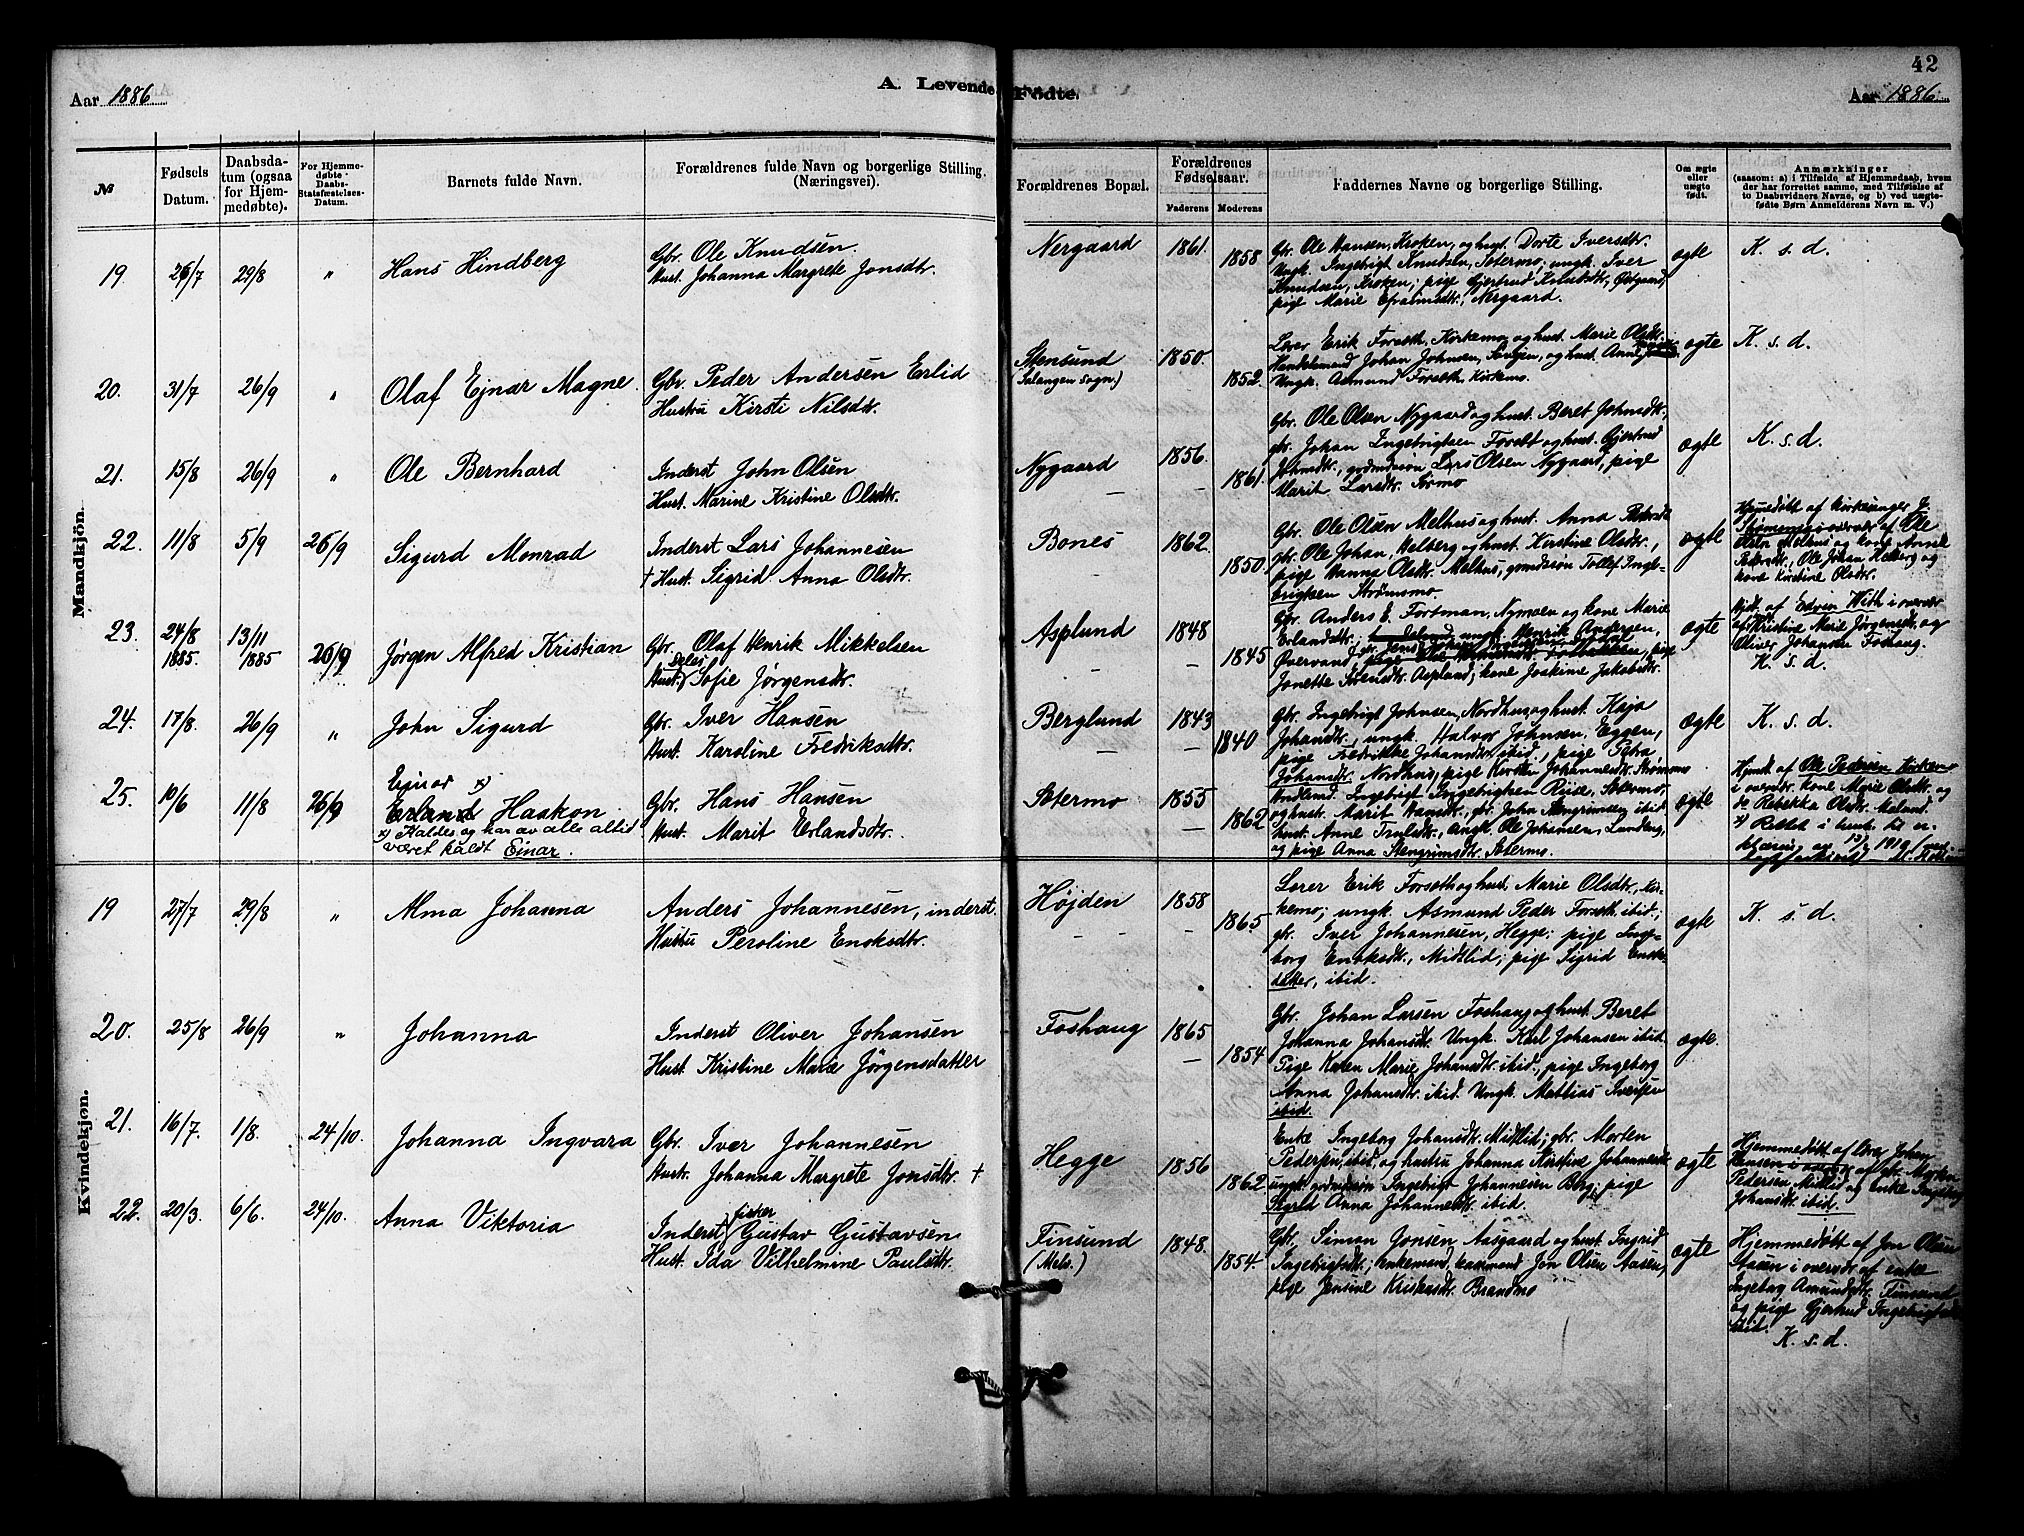 42
Aar 1886
A. Levende Fødte.
Aar 1886
№
Fødsels Datum.
Daabsdatum (ogsaa for Hjemmedøbte).
For Hjemmedøbte Daabs-Statsfæstelses-Datum.
Barnets fulde Navn.
Forældrenes fulde Navn og borgerlige Stilling. (Næringsvei).
Forældrenes Bopæl.
Forældrenes Fødselsaar.
Faderens
Moderens
Faddernes Navne og borgerlige Stilling.
Om ægte eller uægte født.
Anmærkninger
(saasom: a) i Tilfælde af Hjemmedaab, hvem der har forrettet samme, med Tilføielse af to Daabsvidners Navne, og b) ved uægtefødte Børn Anmelderens Navn m. V.)
Mandkjön.
19. 26/7 29/8 " Hans Hindberg
Gbr. Ole Knudsen
Hust. Johanna Margrete Jonsdtr.
Nergaard 1861. 1858
Gbr. Ole Hansen, Kroken, og hust. Dorte Iversdtr.
Ungk. Ingebrigt Knudsen, Setermo; ungk. Iver
Knudsen, Kroken; pige Gjertrud Knudsdtr, Østgaard,
pige Marie Efraimsdtr, Nergaard.
ægte K. s. d.
20. 31/7 26/9 " Olaf Ejnar Magne.
Gbr. Peder Andersen Erlid
Hustru Kirsti Nilsdtr.
Stensund
(Salangen sogn.)
1850. 1852.
Lærer Erik Forseth, Kirkemo og hust. Marie Olsdtr.
Handelsmand Johan Johnsen, og hust. Anne
Ungk. Asmund Forseth Kirkemo.
ægte K. s. d.
21. 15/8 26/9 " Ole Bernhard
Inderst John Olsen
Hust. Marine Kristine Olsdtr.
Nygaard 1856. 1861.
Gbr. Ole Olsen Nygaard og hust. Beret Johnsdtr,
gbr. Johan Ingebrigtsen og hust. Gjertrud
Johnsdtr, grdmdssøn Lars Olsen Nygaard, pige
Marit Larsdtr. Sørmo
ægte K. s. d.
22. 11/8 5/9 26/9 Sigurd Monrad
Inderst Lars Johannesen
† Hust. Sigrid Anna Olsdtr.
Bones 1862. 1850.
Gbr. Ole Olsen Melhus og hust. Anna Pedersdtr
gbr. Ole Johan, Helberg og hust. Kirstine Olsdtr,
pige Hanna Olsdtr. Melhus, grdmdssøn Tollef Inge-
brigtsen Strømsmo
ægte
Hjemedøbt af Kirkesanger J.
Strømeng i overvær af Ole
Olsen Melhus og kone Anne
Pedersdtr, Ole Johan Helberg og
kone Kirstine Olsdtr.
23. 24/8 1885. 13/11 1885 26/9 Jørgen Alfred Kristian
Gbr. Olaf Henrik Mikkelsen
Hust. Sofie Jørgensdtr.
Asplund 1848 1845
Gbr. Anders E. Fortman, Nymoen og kone Marie
Erlandsdtr; ungk. Henrik Andersen,
Øvervand, pige
Jonette Sørensdtr. Asplund; kone Joakine Jakobsdtr.
ægte
Hjdt. af Edvin With i overvær
af Kristine Marie Jørgensdtr. og
Oliver Johansen Foshaug.
K. s. d.
24. 17/8. 26/9 " John Sigurd
Gbr. Iver Hansen
Hust. Karoline Fredriksdtr.
Berglund 1843 1840
Gbr. Ingebrigt Johnsen, Nordhus og hust. Kaja
Johansdtr, ungk. Halvor Johnsen, Eggen,
pige Fredrikke Johansdtr ibid, pige Petra
Johansdtr. Nordhus, pige Kirsten Johannesdtr. Strømsmo
ægte K. s. d.
25. 10/6 11/8 26/9 Ejnar x)
Erland Haakon
x) Kaldes og har av alle altid
været kaldt Einar.
Gbr. Hans Hansen
Hust. Marit Erlandsdtr.
Setermo 1855 1862
Indland. Ingebrigt Ingebrigtsen Ruse, Setermo,
og hust. Marit Hansdtr, gbr. John Stengrimsen ibid
hust. Anne Trulsdtr, ungk. Ole Johansen, Lundberg,
og pige Anna Stengrimsdtr. Setermo.
ægte
Hjmdt. af Ole Pedersen Kirkemo
i overvær kone Marie Olsdtr. og
de Rebekka Olsdtr. Moland.
x) Rettet i henh. til er-
klæring av 13/2 1919
Kvindekjön.
19 27/7 29/8 " Alma Johanna
Anders Johannesen, inderst.
Hustru Peroline Enoksdtr.
Højden 1858 1865
Lærer Erik Forseth og hust. Marie Olsdtr, Kir-
kemo; ungk. Asmund Peder Forseth ibid;
gbr. Iver Johannesen, Hegge; pige Inge-
borg Enoksdtr., Midtlid; pige Sigrid Enoks-
datter, ibid.
ægte K. s. d.
20. 25/8 26/9 " Johanna
Inderst Oliver Johansen
Hust. Kristine Marie Jørgensdatter
Foshaug 1865 1854
Gbr. Johan Larsen Foshaug og hust. Beret
Johanna Johansdtr. Ungk. Karl Johansen ibid.
Pige Karen Marie Johansdtr. ibid., pige Ingeborg
Anna Johansdtr. ibid. Ungk. Mattias Iversen
ibid.
ægte.
21. 16/7. 1/8. 24/10. Johanna Ingvara
Gbr. Iver Johannesen
Hust. Johanna Margrete Jonsdtr. †
Hegge 1856 1862
Enke Ingeborg Johansdtr. Midtlid; gbr. Morten
Pedersen, ibid, og hustru Johanna Kirstine Johannesdtr
ungk. grdmdssøn Ingebrigt Johannesen Berg; pige
Sigrid Anna Johannesdtr. ibid.
ægte
Hjemmedøbt af lærer Johan
Hansen i overvær af gbr. Morten
Pedersen Midtlid og enke Ingeborg
Johansdtr. ibid.
22. 20/3. 6/6. 24/10. Anna Viktoria
Inderst fisker Gustav Gustavsen
Hust. Ida Vilhelmine Paulsdtr.
Finsund
(Mels.)
1848. 1854.
Gbr. Simon Jonsen Aasgaard og hust. Ingrid
Ingebrigtsdtr; enkemand, kaarmand Jon Olsen Aasen,
pige Jensine Kristensdtr. Brandmo
ægte
Hjemmedøbt af Jon Olsen
Aasen i overvær af enke
Ingeborg Amundsdtr. Finsund
og pige Gjertrud Ingebrigtsdtr
ibid.
K. s. d.